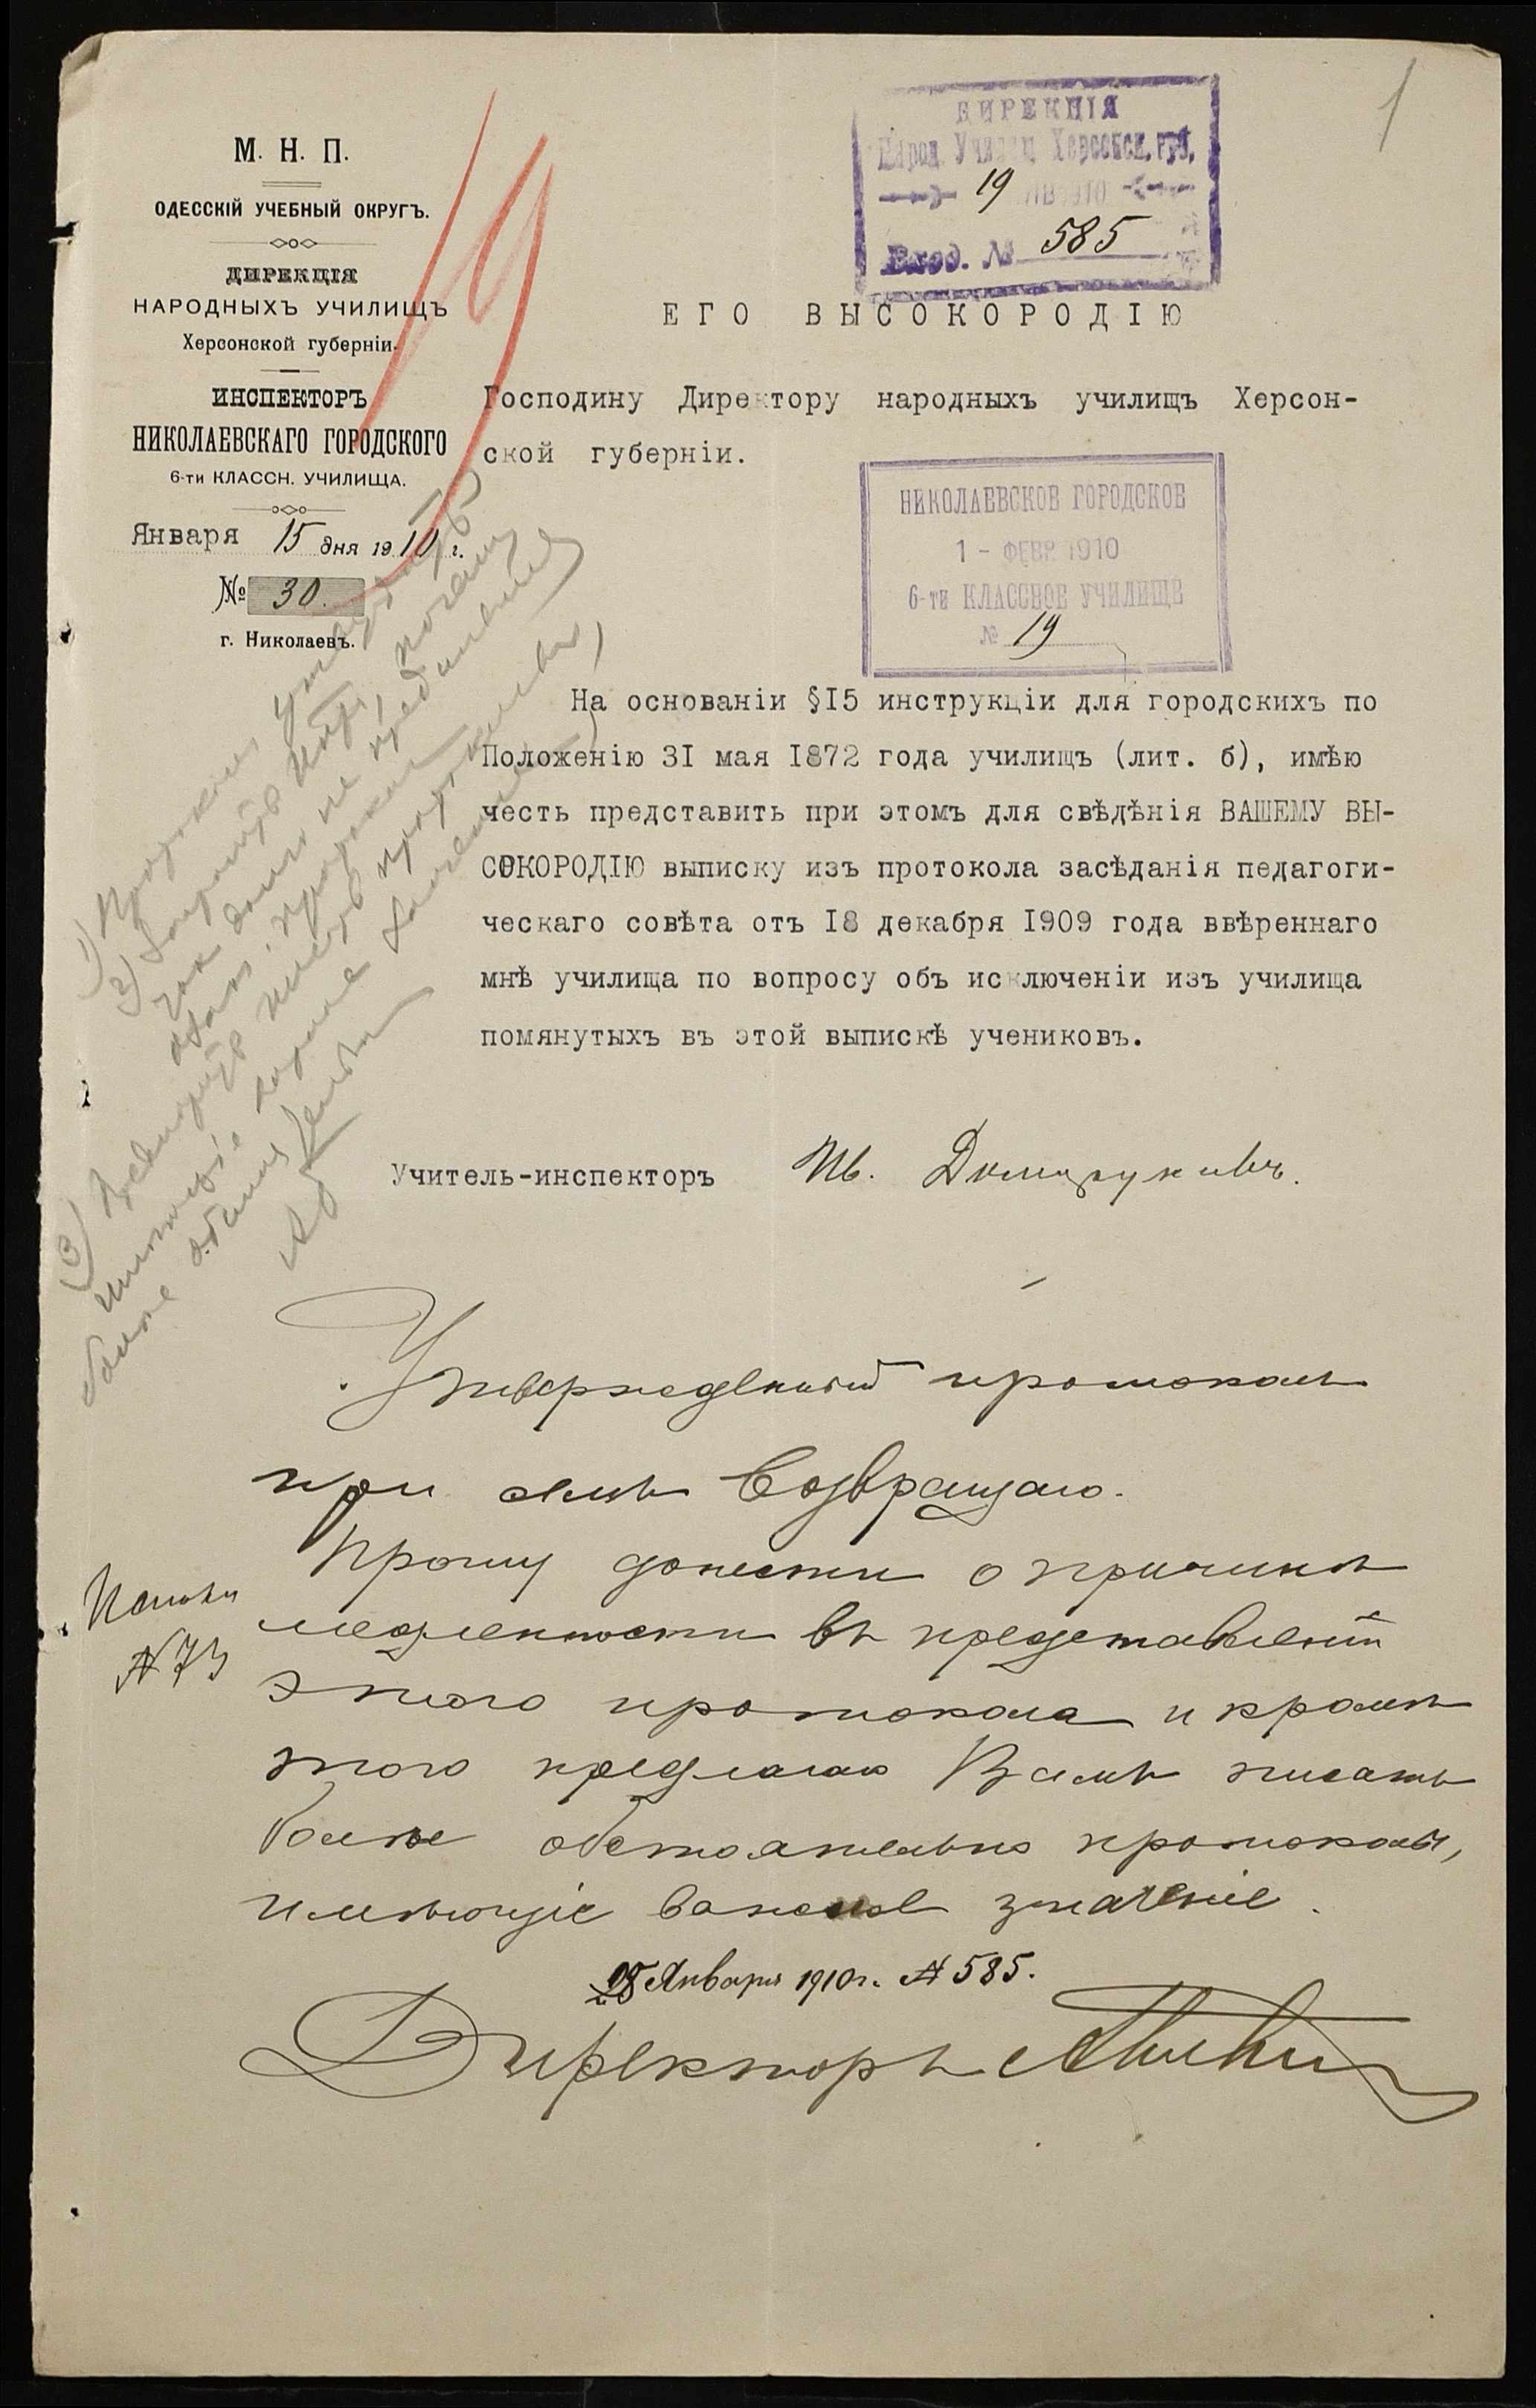 1
ДИРЕКЦІЯ
Народ. Училищ Херсонск. губ.
19 ЯНВ 1910
Вход. № 585
М. Н. П.
ОДЕССКІЙ УЧЕБНЫЙ ОКРУГЪ.
ДИРЕКЦІЯ
НАРОДНЫХЪ УЧИЛИЩЪ
Херсонской губерніи.
ИНСПЕКТОРЪ
НИКОЛАЕВСКАГО ГОРОДСКОГО
6-ти КЛАССН. УЧИЛИЩА.
Января 15 дня 1910 г.
№ 30.
г. Николаевъ.
ЕГО ВЫСОКОРОДІЮ
Господину Директору народныхъ училищъ Херсон-
ской губерніи.
НИКОЛАЕВСКОЕ ГОРОДСКОЕ
1 - ФЕВР 1910
6-ти КЛАССНОЕ УЧИЛИЩЕ
№ 19
На основаніи §15 инструкціи для городскихъ по
Положенію 31 мая 1872 года училищъ (лит. б), имѣю
честь представить при этомъ для свѣдѣнія ВАШЕМУ ВЫ-
СОКОРОДІЮ выписку изъ протокола засѣданія педагоги-
ческаго совѣта отъ 18 декабря 1909 года ввѣреннаго
мнѣ училища по вопросу объ исключеніи изъ училища
помянутыхъ въ этой выпискѣ учениковъ.
Учитель-инспекторъ Ив.
1) Протоколъ
2) почему
такъ долго не
3)
болѣе
Утвержденный протоколъ
при семъ возвращаю.
Прошу донести о причинѣ
медленности въ представленіи
этого протокола и кромѣ
этого предлагаю Вамъ писать
болѣе обстоятельно протоколы,
имѣющіе важное значеніе.
28 Января 1910 г. № 585.
Директоръ
№ 73